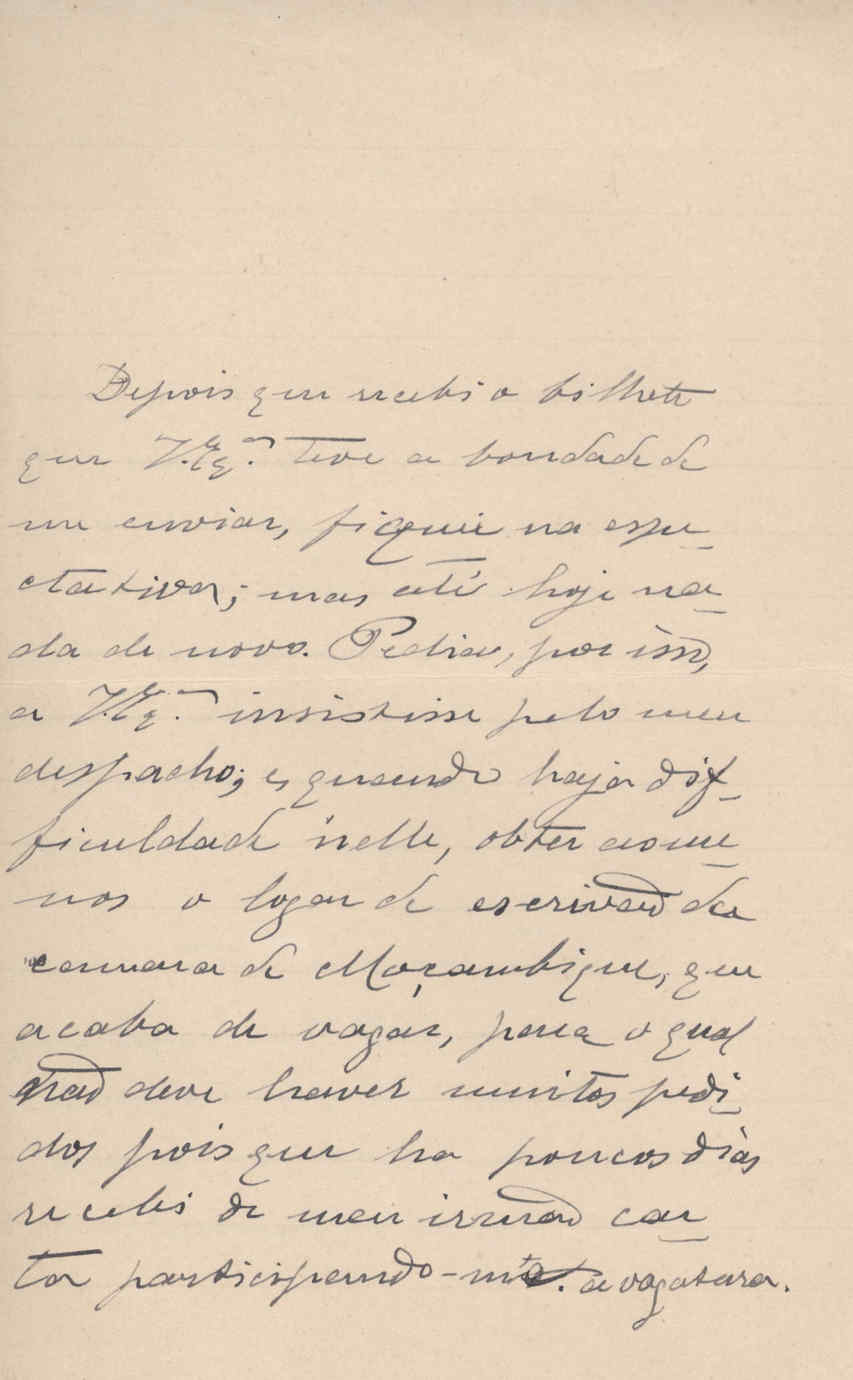 Depois que recebi o bilhete
que V. Exª. teve a bondade de
me enviar, fiquei na espe-
ctativa; mas até hoje na-
da de novo. Pedia, por isso,
a V. Exª. insistisse pelo meu
despacho; e, quando haja dif-
ficuldade n'elle, obter ao me-
nos o logar de escrivão da
camara de Moçambique, que
acaba de vagar, para o qual
não deve haver muitos pedi-
dos pois que ha poucos dias
recebi de meu irmão car-
ta participando-me a vagatura.